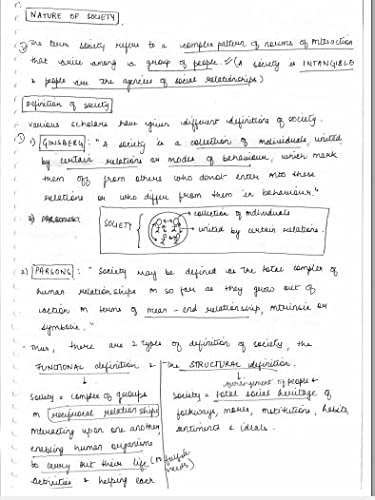 NATURE OF SOCIETY
The term society refers to a complex pattern of norms of interaction
that arise among a group of people. (A society is INTANGIBLE
& people are the agencies of social relationships)
Definition of society
various scholars have given different definitions of society.
1) GINSBERG: "A society is a collection of individuals, united
by certain relations or modes of behaviour, which mark
them off from others who donot enter into these
relations or who differ from them in behaviour."
SOCIETY
collection of individuals
united by certain relations.
2) PARSONS: "Society may be defined as the total complex of
human relationships in so far as they grow out of
action in terms of mean-end relationship, intrinsic or
symbolic."
Thus, there are 2 types of definition of society, the
FUNCTIONAL definition & the STRUCTURAL definition.
↓
society = complex of groups
in reciprocal relationships
interacting upon one another,
enabling human organisms
to carry out their life (to fulfil
needs)
activities & helping each
arrangement of people
society = total social heritage of
folkways, mores, institutions, habits,
sentiments & ideals.